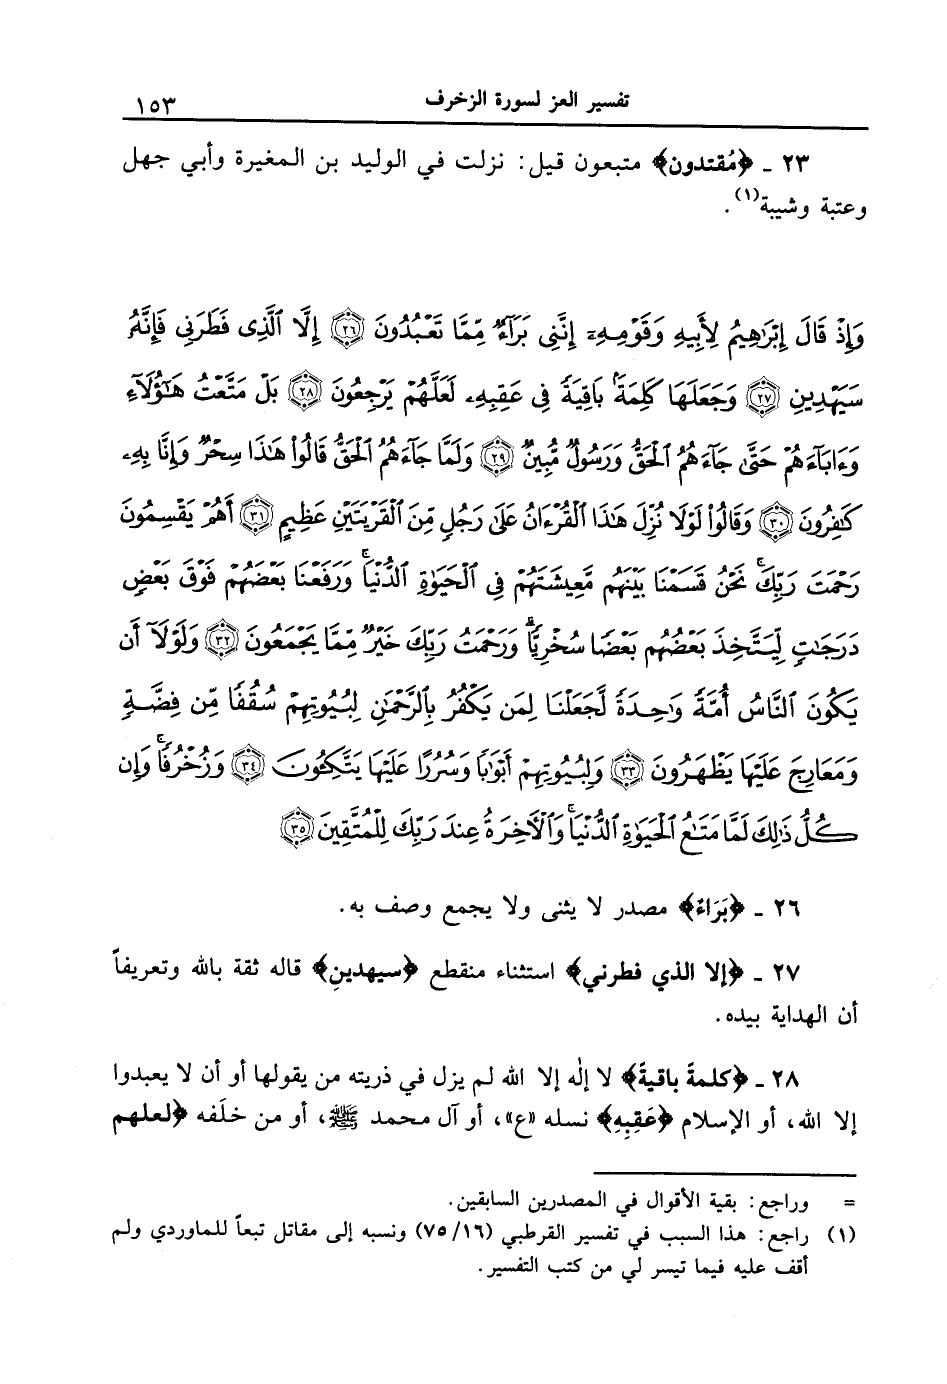 تفسير العز لسورة الزخرف ١٥٣
٢٣ ـ ﴿مُقتدون﴾ متبعون قيل: نزلت في الوليد بن المغيرة وأبي جهل
وعتبة وشيبة(١).
وَإِذْ قَالَ إِبْرَٰهِيمُ لِأَبِيهِ وَقَوْمِهِۦٓ إِنَّنِى بَرَآءٌ مِّمَّا تَعْبُدُونَ ٢٦ إِلَّا ٱلَّذِى فَطَرَنِى فَإِنَّهُۥ
سَيَهْدِينِ ٢٧ وَجَعَلَهَا كَلِمَةًۢ بَاقِيَةً فِى عَقِبِهِۦ لَعَلَّهُمْ يَرْجِعُونَ ٢٨ بَلْ مَتَّعْتُ هَٰٓؤُلَآءِ
وَءَابَآءَهُمْ حَتَّىٰ جَآءَهُمُ ٱلْحَقُّ وَرَسُولٌ مُّبِينٌ ٢٩ وَلَمَّا جَآءَهُمُ ٱلْحَقُّ قَالُوا۟ هَٰذَا سِحْرٌ وَإِنَّا بِهِۦ
كَٰفِرُونَ ٣٠ وَقَالُوا۟ لَوْلَا نُزِّلَ هَٰذَا ٱلْقُرْءَانُ عَلَىٰ رَجُلٍ مِّنَ ٱلْقَرْيَتَيْنِ عَظِيمٍ ٣١ أَهُمْ يَقْسِمُونَ
رَحْمَتَ رَبِّكَ ۚ نَحْنُ قَسَمْنَا بَيْنَهُم مَّعِيشَتَهُمْ فِى ٱلْحَيَوٰةِ ٱلدُّنْيَا ۚ وَرَفَعْنَا بَعْضَهُمْ فَوْقَ بَعْضٍ
دَرَجَٰتٍ لِّيَتَّخِذَ بَعْضُهُم بَعْضًا سُخْرِيًّا ۗ وَرَحْمَتُ رَبِّكَ خَيْرٌ مِّمَّا يَجْمَعُونَ ٣٢ وَلَوْلَآ أَن
يَكُونَ ٱلنَّاسُ أُمَّةً وَٰحِدَةً لَّجَعَلْنَا لِمَن يَكْفُرُ بِٱلرَّحْمَٰنِ لِبُيُوتِهِمْ سُقُفًا مِّن فِضَّةٍ
وَمَعَارِجَ عَلَيْهَا يَظْهَرُونَ ٣٣ وَلِبُيُوتِهِمْ أَبْوَٰبًا وَسُرُرًا عَلَيْهَا يَتَّكِـُٔونَ ٣٤ وَزُخْرُفًا ۚ وَإِن
كُلُّ ذَٰلِكَ لَمَّا مَتَٰعُ ٱلْحَيَوٰةِ ٱلدُّنْيَا ۚ وَٱلْءَاخِرَةُ عِندَ رَبِّكَ لِلْمُتَّقِينَ ٣٥
٢٦ ـ ﴿بَرَاءٌ﴾ مصدر لا يثنى ولا يجمع وصف به.
٢٧ ـ ﴿إلا الذي فطرني﴾ استثناء منقطع ﴿سيهدينِ﴾ قاله ثقة بالله وتعريفاً
أن الهداية بيده.
٢٨ ـ ﴿كلمةً باقيةً﴾ لا إلٰه إلا الله لم يزل في ذريته من يقولها أو أن لا يعبدوا
إلا الله، أو الإسلام ﴿عَقِبِهِ﴾ نسله «ع»، أو آل محمد ﷺ، أو من خلَفه ﴿لعلهم
= وراجع: بقية الأقوال في المصدرين السابقين.
(١) راجع: هذا السبب في تفسير القرطبي (١٦/ ٧٥) ونسبه إلى مقاتل تبعاً للماوردي ولم
أقف عليه فيما تيسر لي من كتب التفسير.